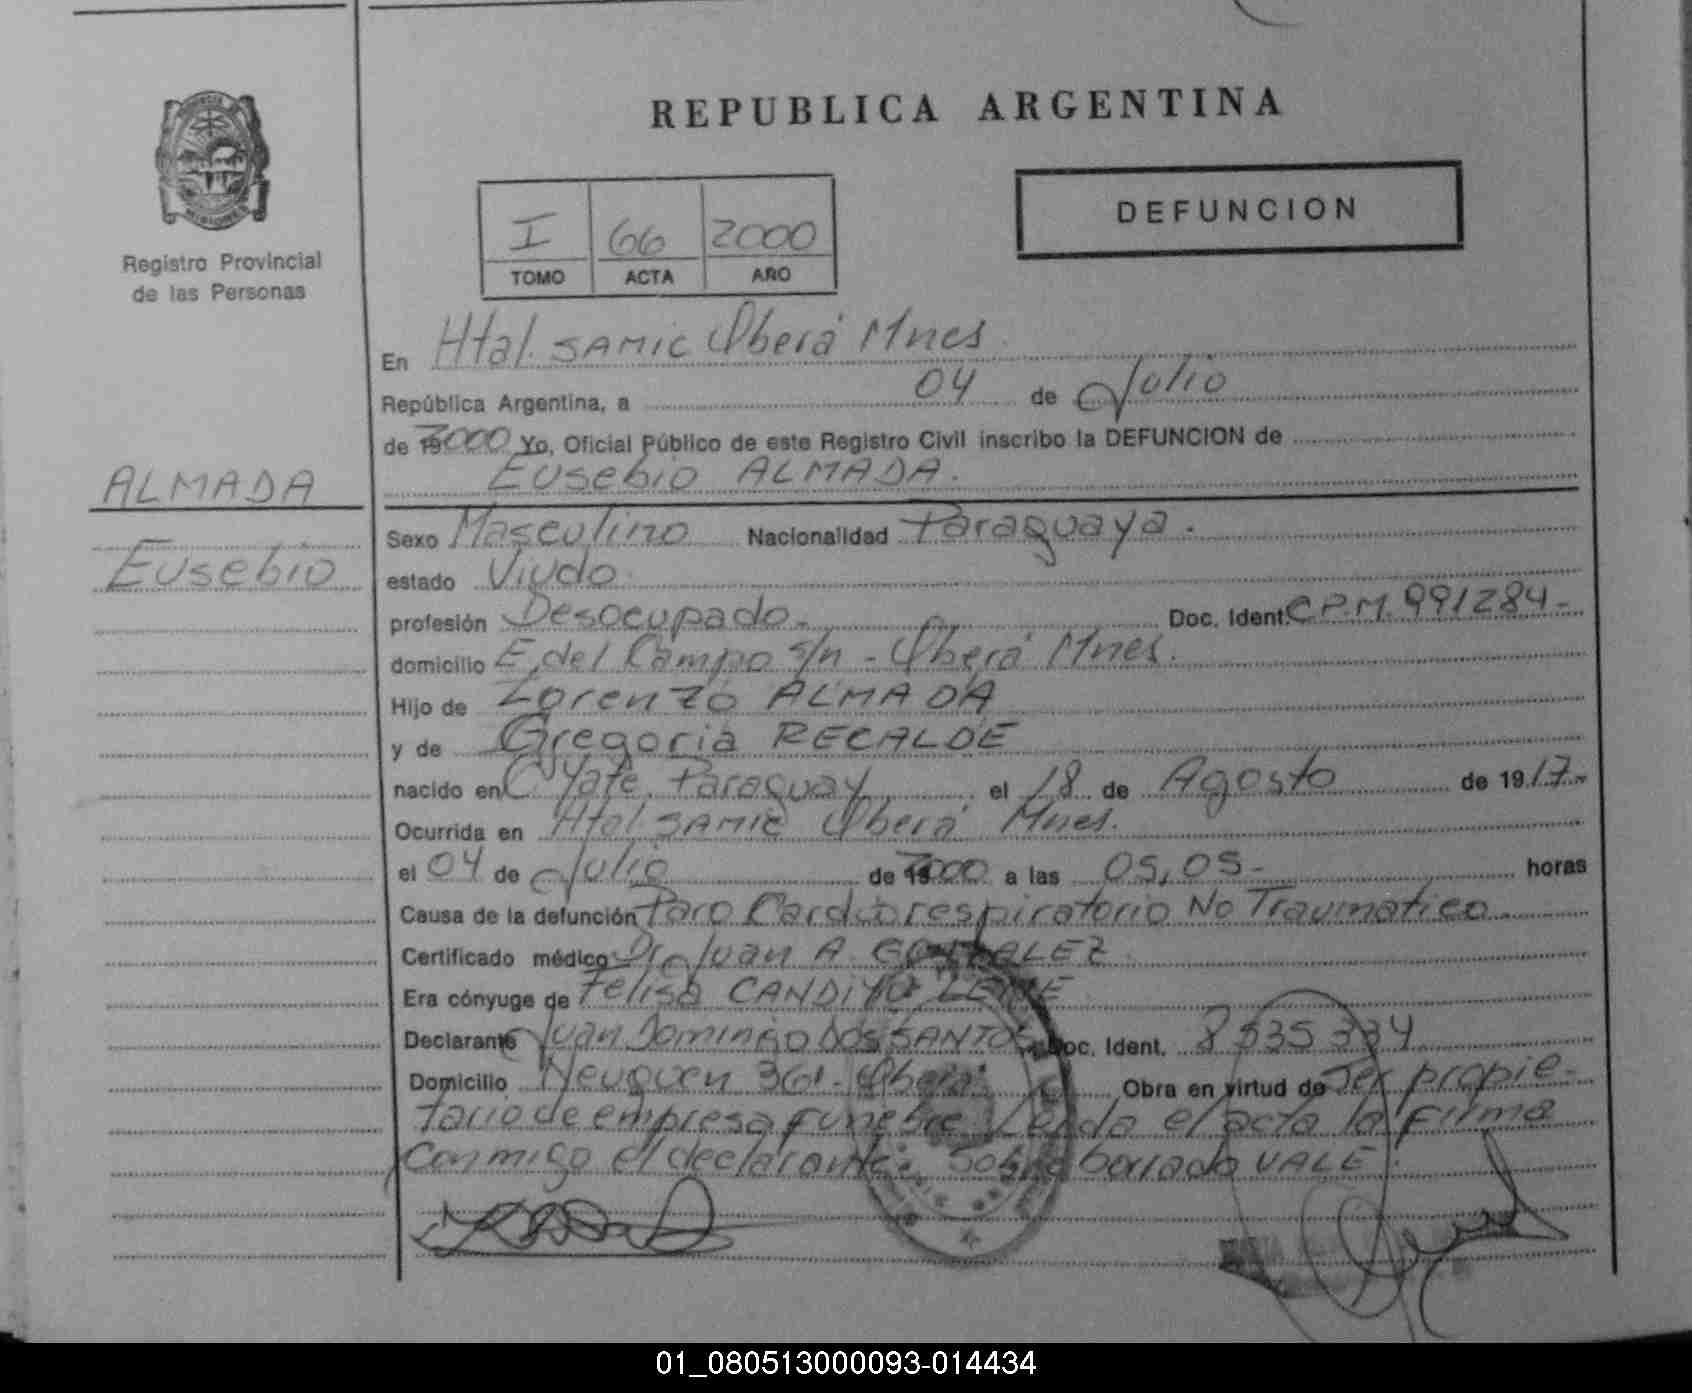 REPUBLICA ARGENTINA
DEFUNCION
I 66 2000
TOMO ACTA AÑO
Registro Provincial
de las Personas
En Htal. SAMIC Oberá Mnes.
República Argentina, a 04 de Julio
de 2000 Yo, Oficial Público de este Registro Civil inscribo la DEFUNCION de
Eusebio ALMADA.
ALMADA
Eusebio
Sexo Masculino Nacionalidad Paraguaya.
estado Viudo.
profesión Desocupado. Doc. Ident. C.P.M. 991284-
domicilio E. del Campo s/n - Oberá Mnes.
Hijo de Lorenzo ALMADA
y de Gregoria RECALDE
nacido en Yate, Paraguay el 18 de Agosto de 1917-
Ocurrida en Htal SAMIC Oberá Mnes.
el 04 de Julio de 2000 a las 05,05- horas
Causa de la defunción Paro Cardiorespiratorio No Traumatico
Certificado médico Dr. Juan A. GONZALEZ
Era cónyuge de Felisa
Declarante Juan Domingo Dos SANTOS Doc. Ident. 8535334
Domicilio Neuquen 361- Oberá Obra en virtud de Ser propie-
tario de empresa funebre Leida el acta la firma
conmigo el declarante. Sobre borrado VALE.
01_080513000093-014434